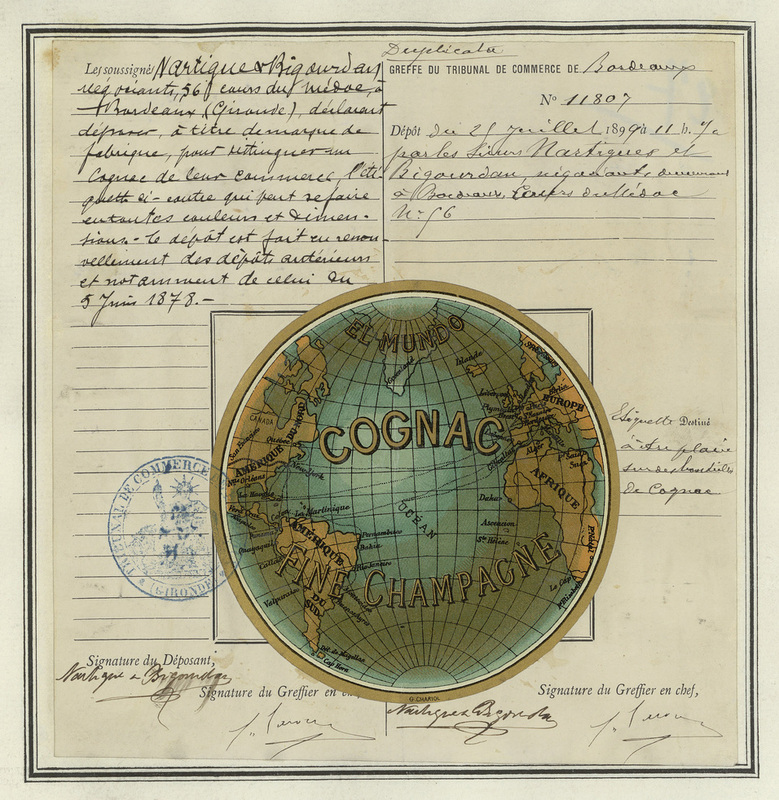 Les soussignés Nartigue & Bigourdan
négociants, 56 cours du Médoc, à
Bordeaux (Gironde), déclarent
déposer, à titre de marque de
fabrique, pour distinguer un
Cognac de leur commerce, l'éti-
quette ci-contre qui peut se faire
en toutes couleurs et dimen-
sions. Le dépôt est fait en renou-
vellement des dépôts antérieurs
et notamment de celui du
5 Juin 1878.-
Duplicata
GREFFE DU TRIBUNAL DE COMMERCE DE Bordeaux
No 11807
Dépôt du 25 Juillet 1899 à 11 h.
par les Sieurs Nartigues et
Bigourdan, négociants demeurant
à Bordeaux, Cours du Médoc
No 56
EL MUNDO
COGNAC
FINE CHAMPAGNE
Groenland
Islande
CANADA
San Francisco
AMÉRIQUE DU NORD
Québec
New-York
Nlle Orléans
La Havane
La Martinique
AMÉRIQUE DU SUD
Guayaquil
Callao
Valparaiso
Pernambuco
Bahia
Rio-Janeiro
Cap Horn
OCÉAN
EUROPE
AFRIQUE
Dakar
Ascension
Ste Hélène
Le Cap
Etiquette Destiné
à être placée
sur des bouteilles
de Cognac
TRIBUNAL DE COMMERCE
(GIRONDE)
Signature du Déposant,
Nartigue & Bigourdan
Signature du Greffier en
G. CHARIOL
Nartigue & Bigourdan
Signature du Greffier en chef,